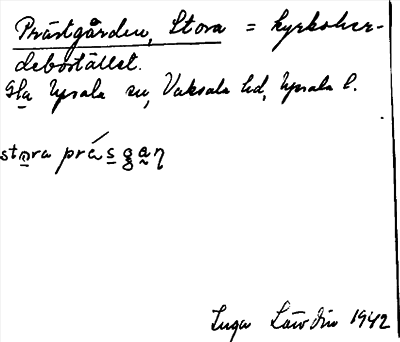 Prästgården, Stora = kyrkoher-
debostället.
Gla Upsala sn, Vaksala hd, Upsala l.
stora präsgaŋ
Inga Låwdin 1942